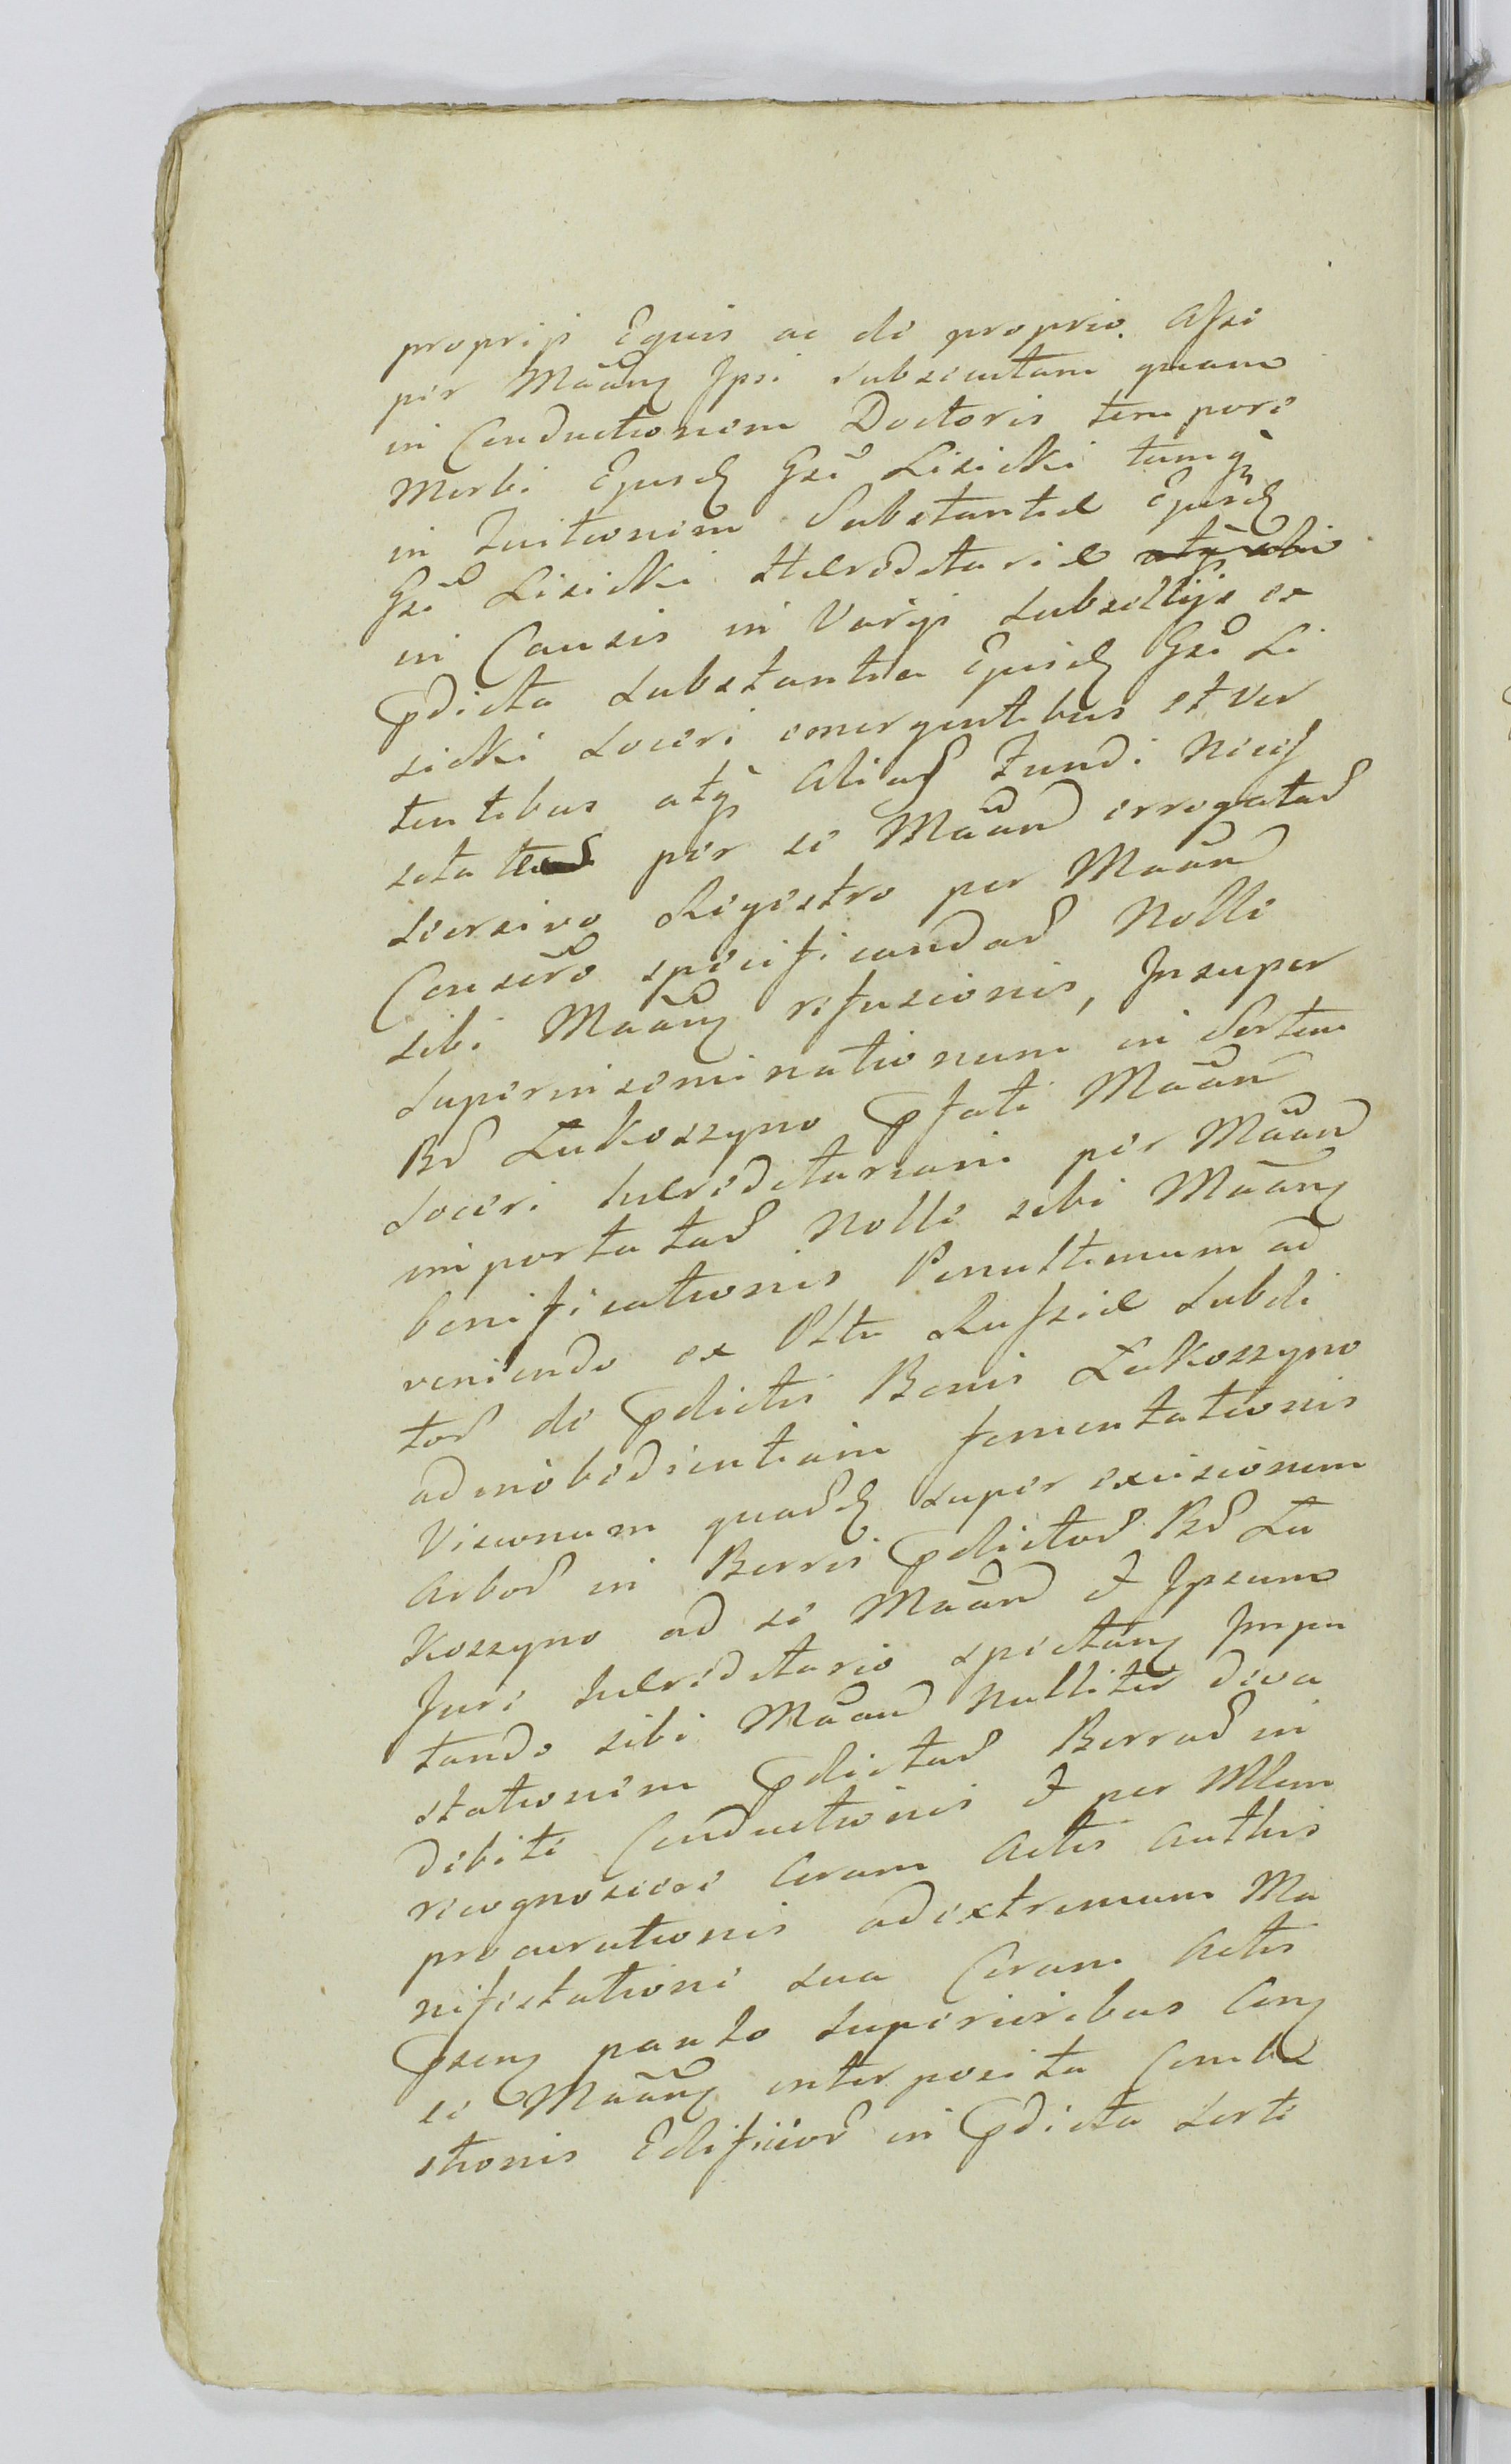 proprijs Equis ac de proprio Asse
per Maãnẽ Ipsi subsecutam quam
in Conductionem Doctoris tempore
Morbi Ejusdẽ Gsi Lisicki tumq̃
in Tuitionem Substantiae Ejusdẽ
Gsi Lisicki Haereditariae
in Causis in Varijs Subsellijs ex
pdicta Substantia Ejusdẽ Gsi Li
sicki Soceri emergentibus et ver
tentibus atq̃ alias fundi Necess
itat per se Maãnẽ errogatar̃
seorsivo Registro per Maãnẽ
Consc̃ro specificandar̃ Nolle
sibi Maãnẽ refusionis, Insuper
Superinseminationum in Sortem
Br̃ Lukoszyno pfati Maãn
Soceri haereditariam per Maãnẽ
importatar̃ Nolle sibi Maãnẽ
bonificationis Penultimum ad
veniendo ex Pltu Russiae Subdi
tor̃ de pdictis Bonis Lukoszyno
ad inobedientiam fomentationis
Visionum quardẽ super excisionem
Arbor̃ in Borris pdictor̃ Br̃ Lu
koszyno ad se Maãnẽ et Ipsum
Jure haereditario spectanẽ Impu
tando sibi Maãnẽ nulliter deva
stationem pdictar̃ Borrar̃ in
debite Conductionis et per Mlem
recognoscere Coram Actis Authis
procurationis ad extremum Ma
nifestatione sua Coram Actis
psenẽ paulo Superioribus Conẽ
se Maãnẽ interposita Combu
stionis Edificior̃ in pdicta Sorte